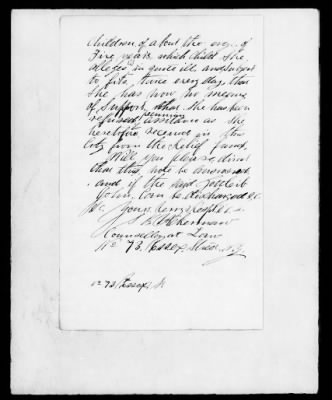 children, of about the age of
Five years, which child she
alleges, is quite ill, and subject
to fits, twice every day, that
she has now no means
of support, that she has been
refused pecuniary assistance as she
heretofore received in this
City from the Relief fund.
Will you please direct
that this note be answered
and if the said
John, can be discharged &c.
Yours very respectfully
Counsellor at Law
No 73, Essex Street N.Y.
No 73 Essex St